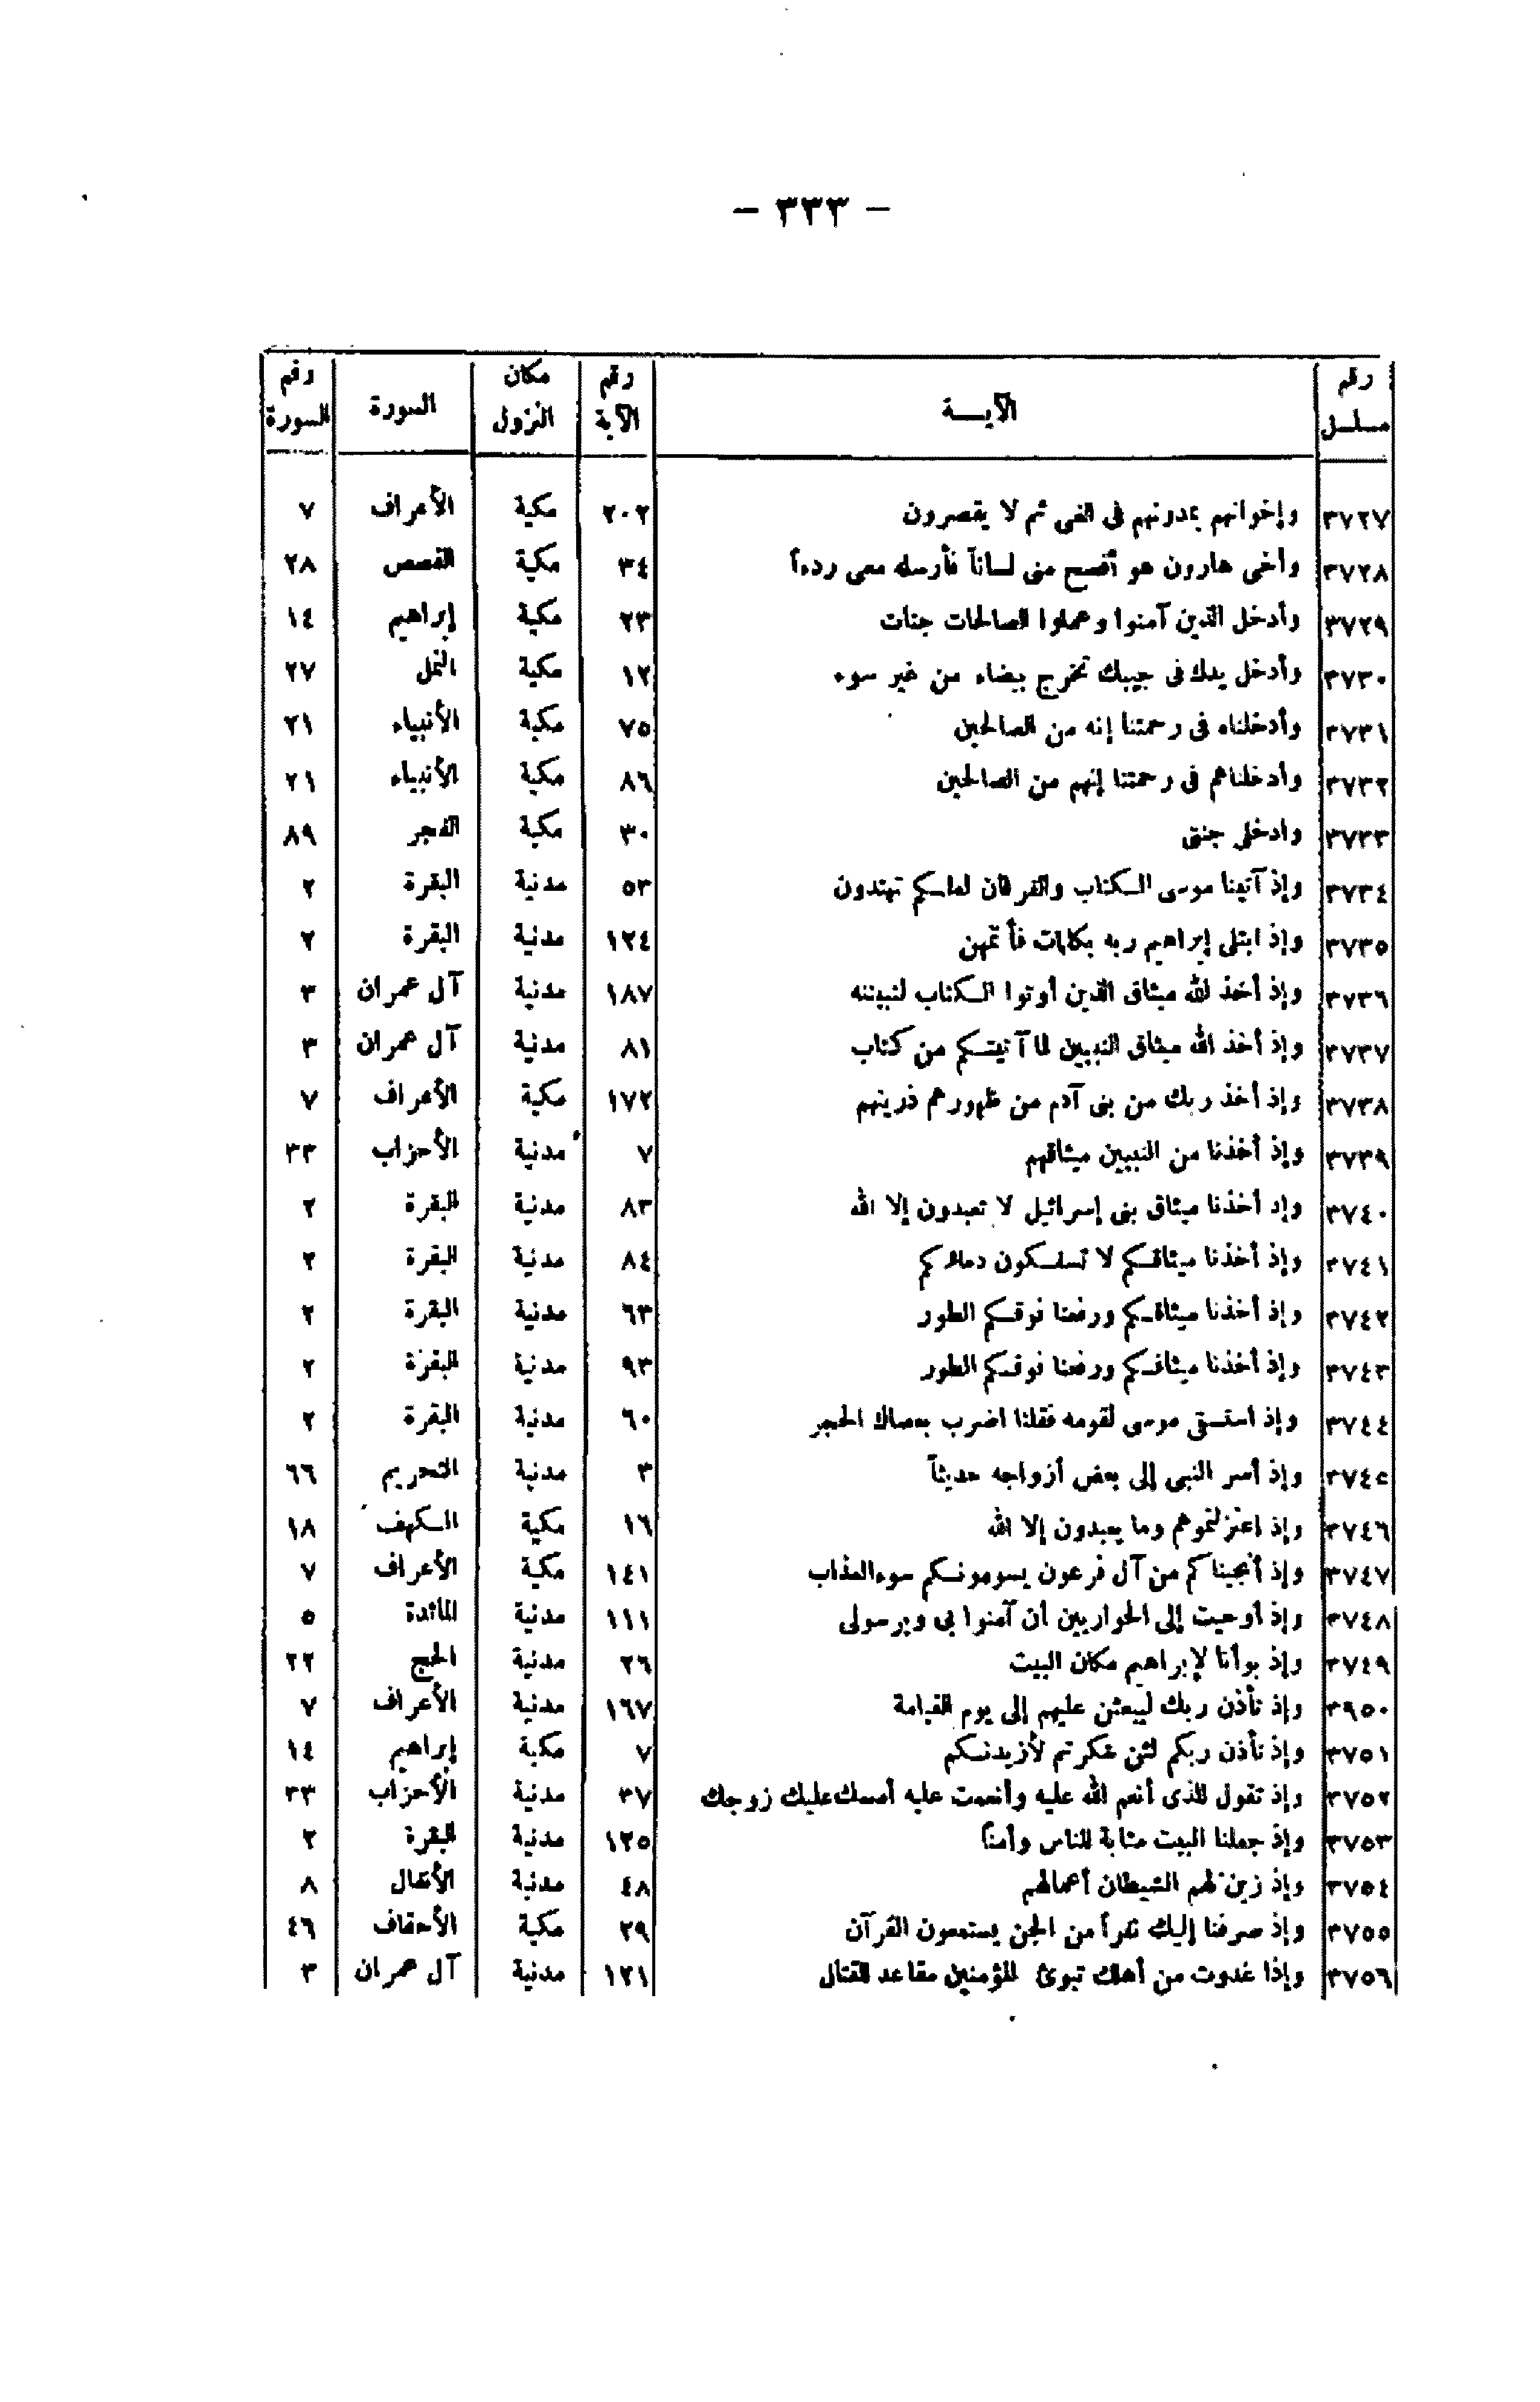 — ٣٣٣ —
رقم مسلسل | الآيــة | رقم الآية | مكان النزول | السورة | رقم السورة
٣٧٢٧ | وإخوانهم يمدونهم فى الغى ثم لا يقصرون | ٢٠٢ | مكية | الأعراف | ٧
٣٧٢٨ | وأخى هارون هو أفصح منى لساناً فأرسله معى ردءاً | ٣٤ | مكية | القصص | ٢٨
٣٧٢٩ | وأدخل الذين آمنوا وعملوا الصالحات جنات | ٢٣ | مكية | إبراهيم | ١٤
٣٧٣٠ | وأدخل يدك فى جيبك تخرج بيضاء من غير سوء | ١٢ | مكية | النمل | ٢٧
٣٧٣١ | وأدخلناه فى رحمتنا إنه من الصالحين | ٧٥ | مكية | الأنبياء | ٢١
٣٧٣٢ | وأدخلناهم فى رحمتنا إنهم من الصالحين | ٨٦ | مكية | الأنبياء | ٢١
٣٧٣٣ | وادخلى جنتى | ٣٠ | مكية | الفجر | ٨٩
٣٧٣٤ | وإذ آتينا موسى الكتاب والفرقان لعلكم تهتدون | ٥٣ | مدنية | البقرة | ٢
٣٧٣٥ | وإذ ابتلى إبراهيم ربه بكلمات فأتمهن | ١٢٤ | مدنية | البقرة | ٢
٣٧٣٦ | وإذ أخذ الله ميثاق الذين أوتوا الكتاب لتبيننه | ١٨٧ | مدنية | آل عمران | ٣
٣٧٣٧ | وإذ أخذ الله ميثاق النبيين لما آتيتكم من كتاب | ٨١ | مدنية | آل عمران | ٣
٣٧٣٨ | وإذ أخذ ربك من بنى آدم من ظهورهم ذريتهم | ١٧٢ | مكية | الأعراف | ٧
٣٧٣٩ | وإذ أخذنا من النبيين ميثاقهم | ٧ | مدنية | الأحزاب | ٣٣
٣٧٤٠ | وإذ أخذنا ميثاق بنى إسرائيل لا تعبدون إلا الله | ٨٣ | مدنية | البقرة | ٢
٣٧٤١ | وإذ أخذنا ميثاقكم لا تسفكون دماءكم | ٨٤ | مدنية | البقرة | ٢
٣٧٤٢ | وإذ أخذنا ميثاقكم ورفعنا فوقكم الطور | ٦٣ | مدنية | البقرة | ٢
٣٧٤٣ | وإذ أخذنا ميثاقكم ورفعنا فوقكم الطور | ٩٣ | مدنية | البقرة | ٢
٣٧٤٤ | وإذ استسقى موسى لقومه فقلنا اضرب بعصاك الحجر | ٦٠ | مدنية | البقرة | ٢
٣٧٤٥ | وإذ أسر النبى إلى بعض أزواجه حديثاً | ٣ | مدنية | التحريم | ٦٦
٣٧٤٦ | وإذ اعتزلتموهم وما يعبدون إلا الله | ١٦ | مكية | الكهف | ١٨
٣٧٤٧ | وإذ أنجيناكم من آل فرعون يسومونكم سوء العذاب | ١٤١ | مكية | الأعراف | ٧
٣٧٤٨ | وإذ أوحيت إلى الحواريين أن آمنوا بى وبرسولى | ١١١ | مدنية | المائدة | ٥
٣٧٤٩ | وإذ بوأنا لإبراهيم مكان البيت | ٢٦ | مدنية | الحج | ٢٢
٣٩٥٠ | وإذ تأذن ربك ليبعثن عليهم إلى يوم القيامة | ١٦٧ | مدنية | الأعراف | ٧
٣٧٥١ | وإذ تأذن ربكم لئن شكرتم لأزيدنكم | ٧ | مكية | إبراهيم | ١٤
٣٧٥٢ | وإذ تقول للذى أنعم الله عليه وأنعمت عليه أمسك عليك زوجك | ٣٧ | مدنية | الأحزاب | ٣٣
٣٧٥٣ | وإذ جعلنا البيت مثابة للناس وأمناً | ١٢٥ | مدنية | البقرة | ٢
٣٧٥٤ | وإذ زين لهم الشيطان أعمالهم | ٤٨ | مدنية | الأنفال | ٨
٣٧٥٥ | وإذ صرفنا إليك نفراً من الجن يستمعون القرآن | ٢٩ | مكية | الأحقاف | ٤٦
٣٧٥٦ | وإذا غدوت من أهلك تبوئ للمؤمنين مقاعد للقتال | ١٢١ | مدنية | آل عمران | ٣